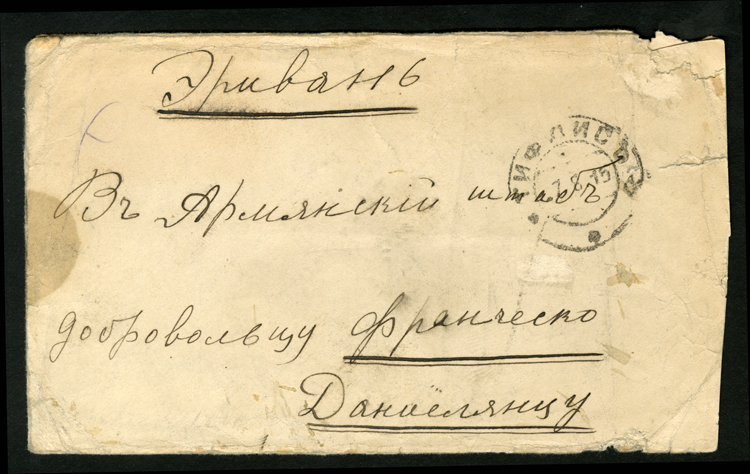 Эривань
ТИФЛИСЪ
7.8.15
Въ Армянскій штабъ
добровольцу Франческо
Даніелянцу